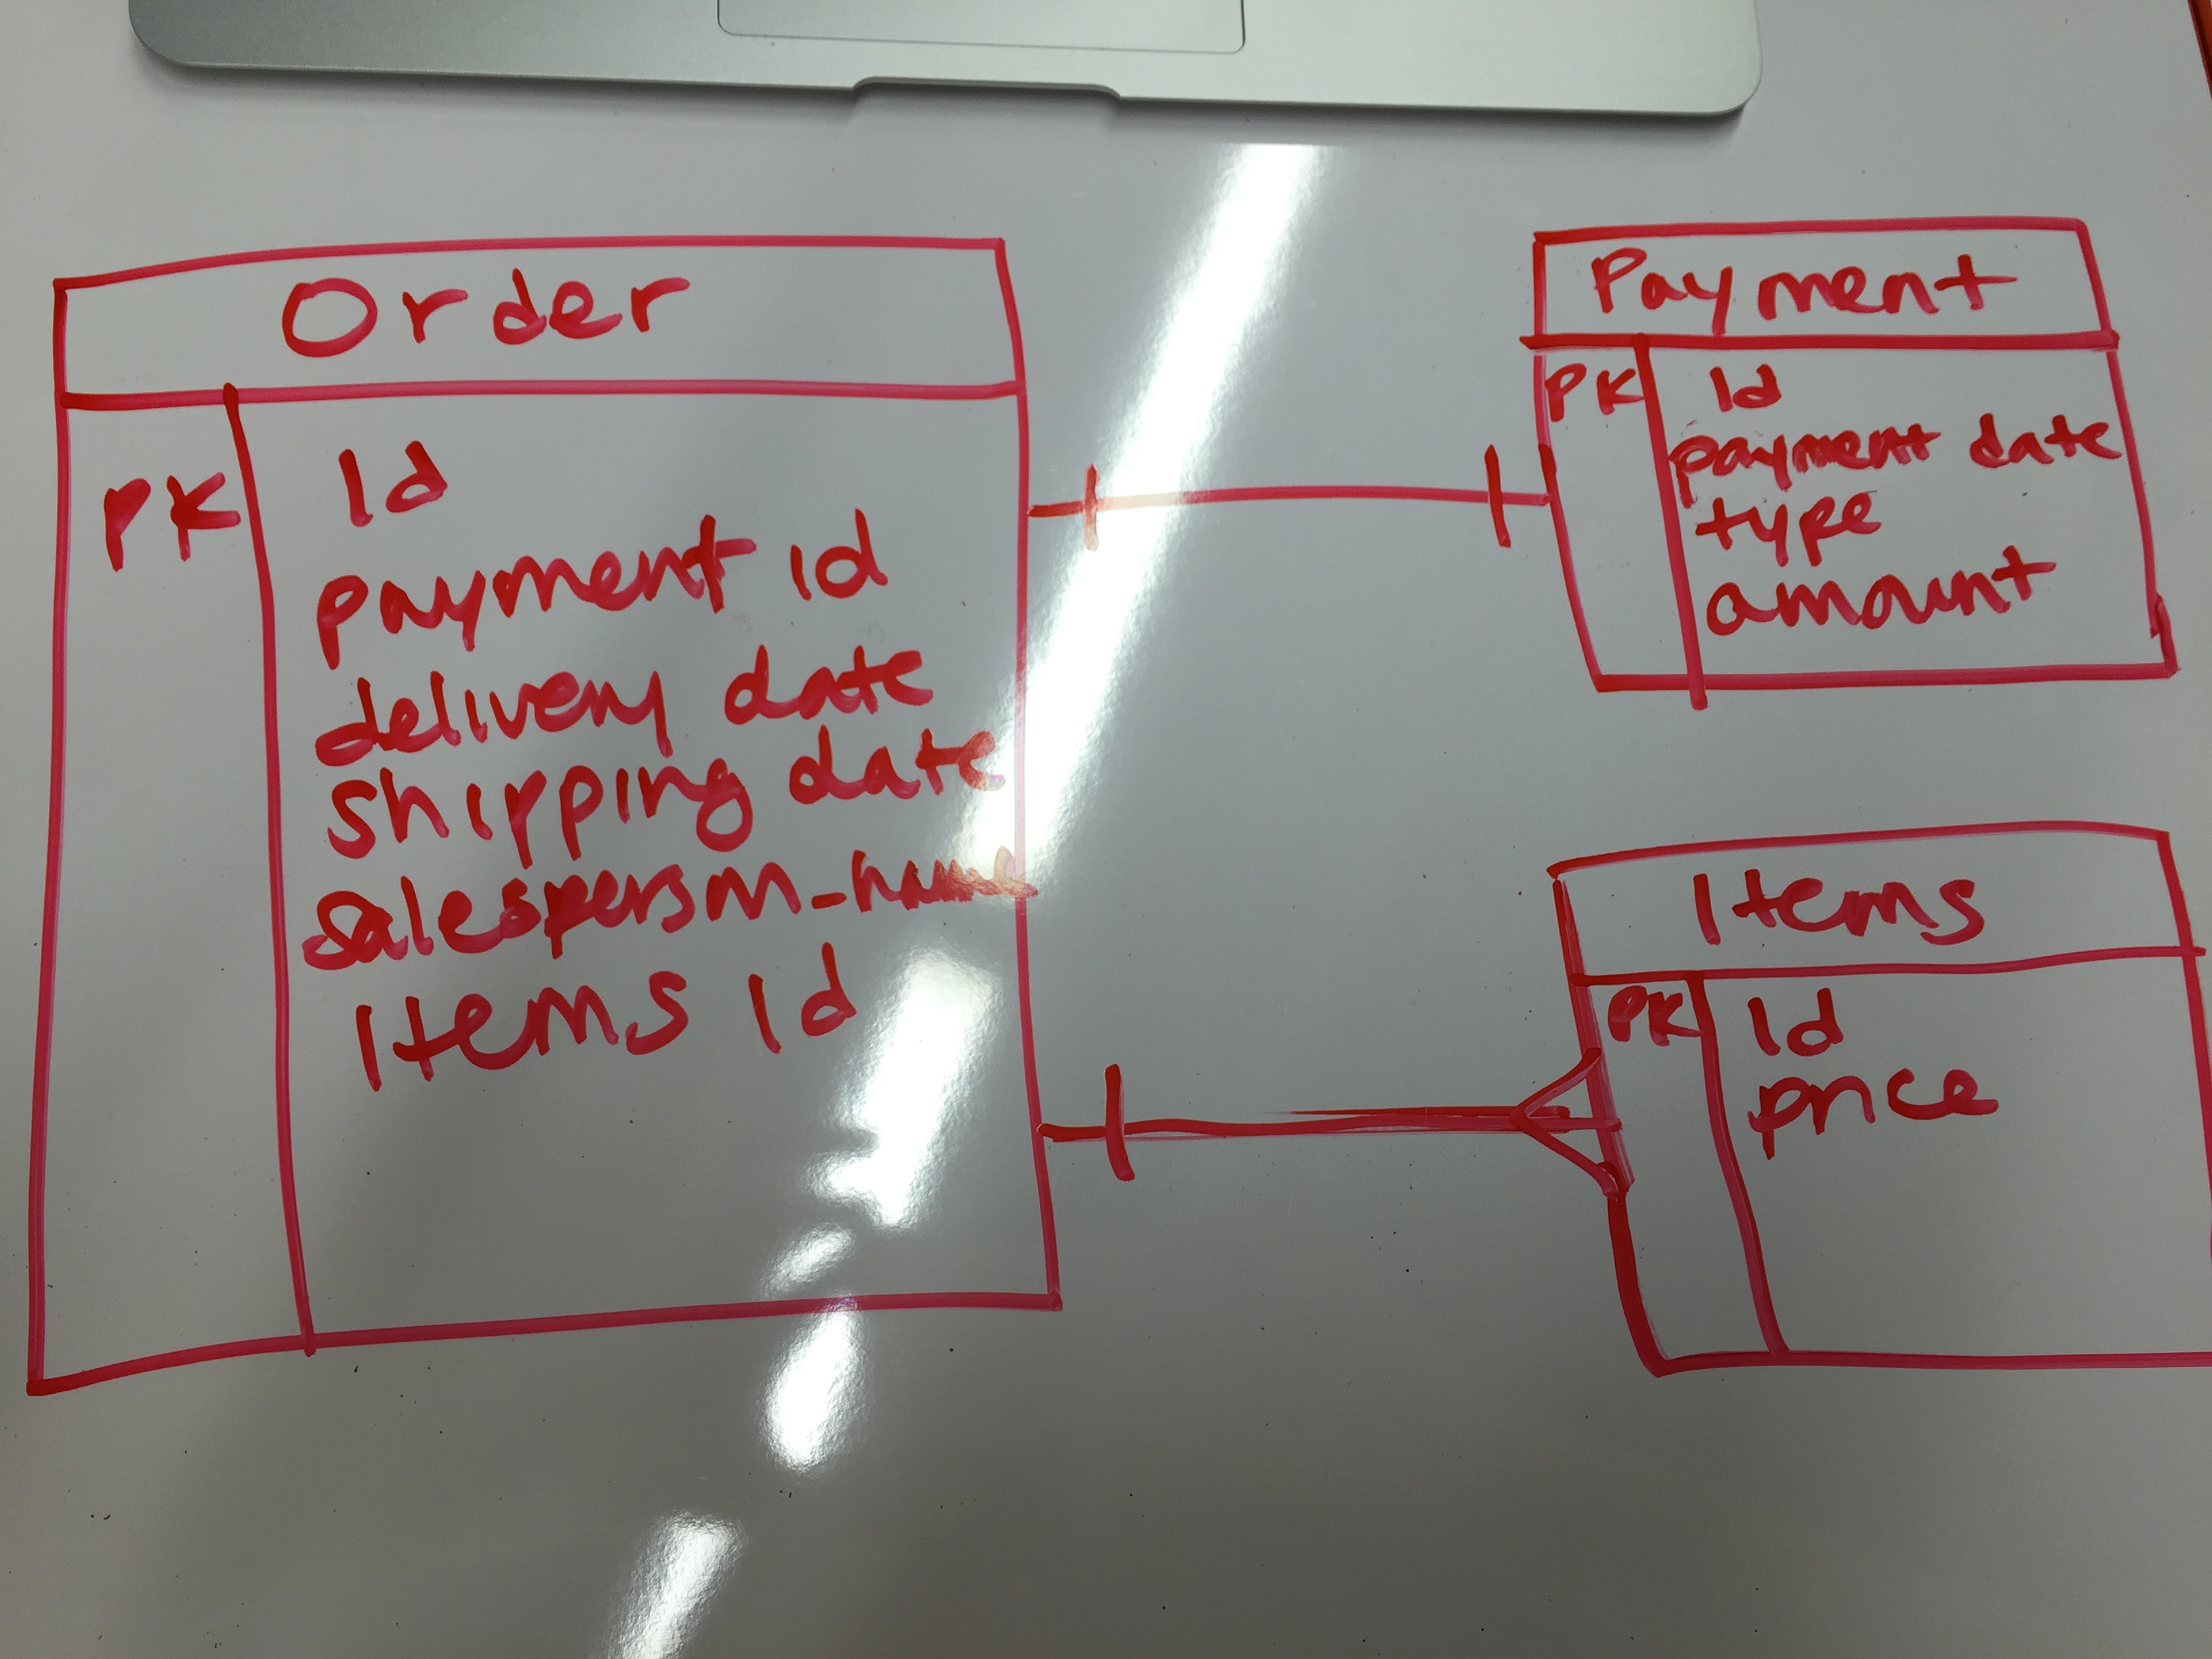 Order
PK
id
payment id
delivery date
shipping date
Items id
Payment
PK
id
payment date
type
amount
Items
PK
id
price